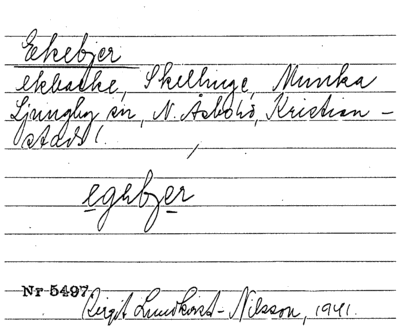 Ekebjer
ekbacke, Skellinge, Munka
Ljungby sn, N. Åsbohd, Kristian-
stads l.
egebjer
Nr 5497
Birgit Lundkvist-Nilsson, 1941.